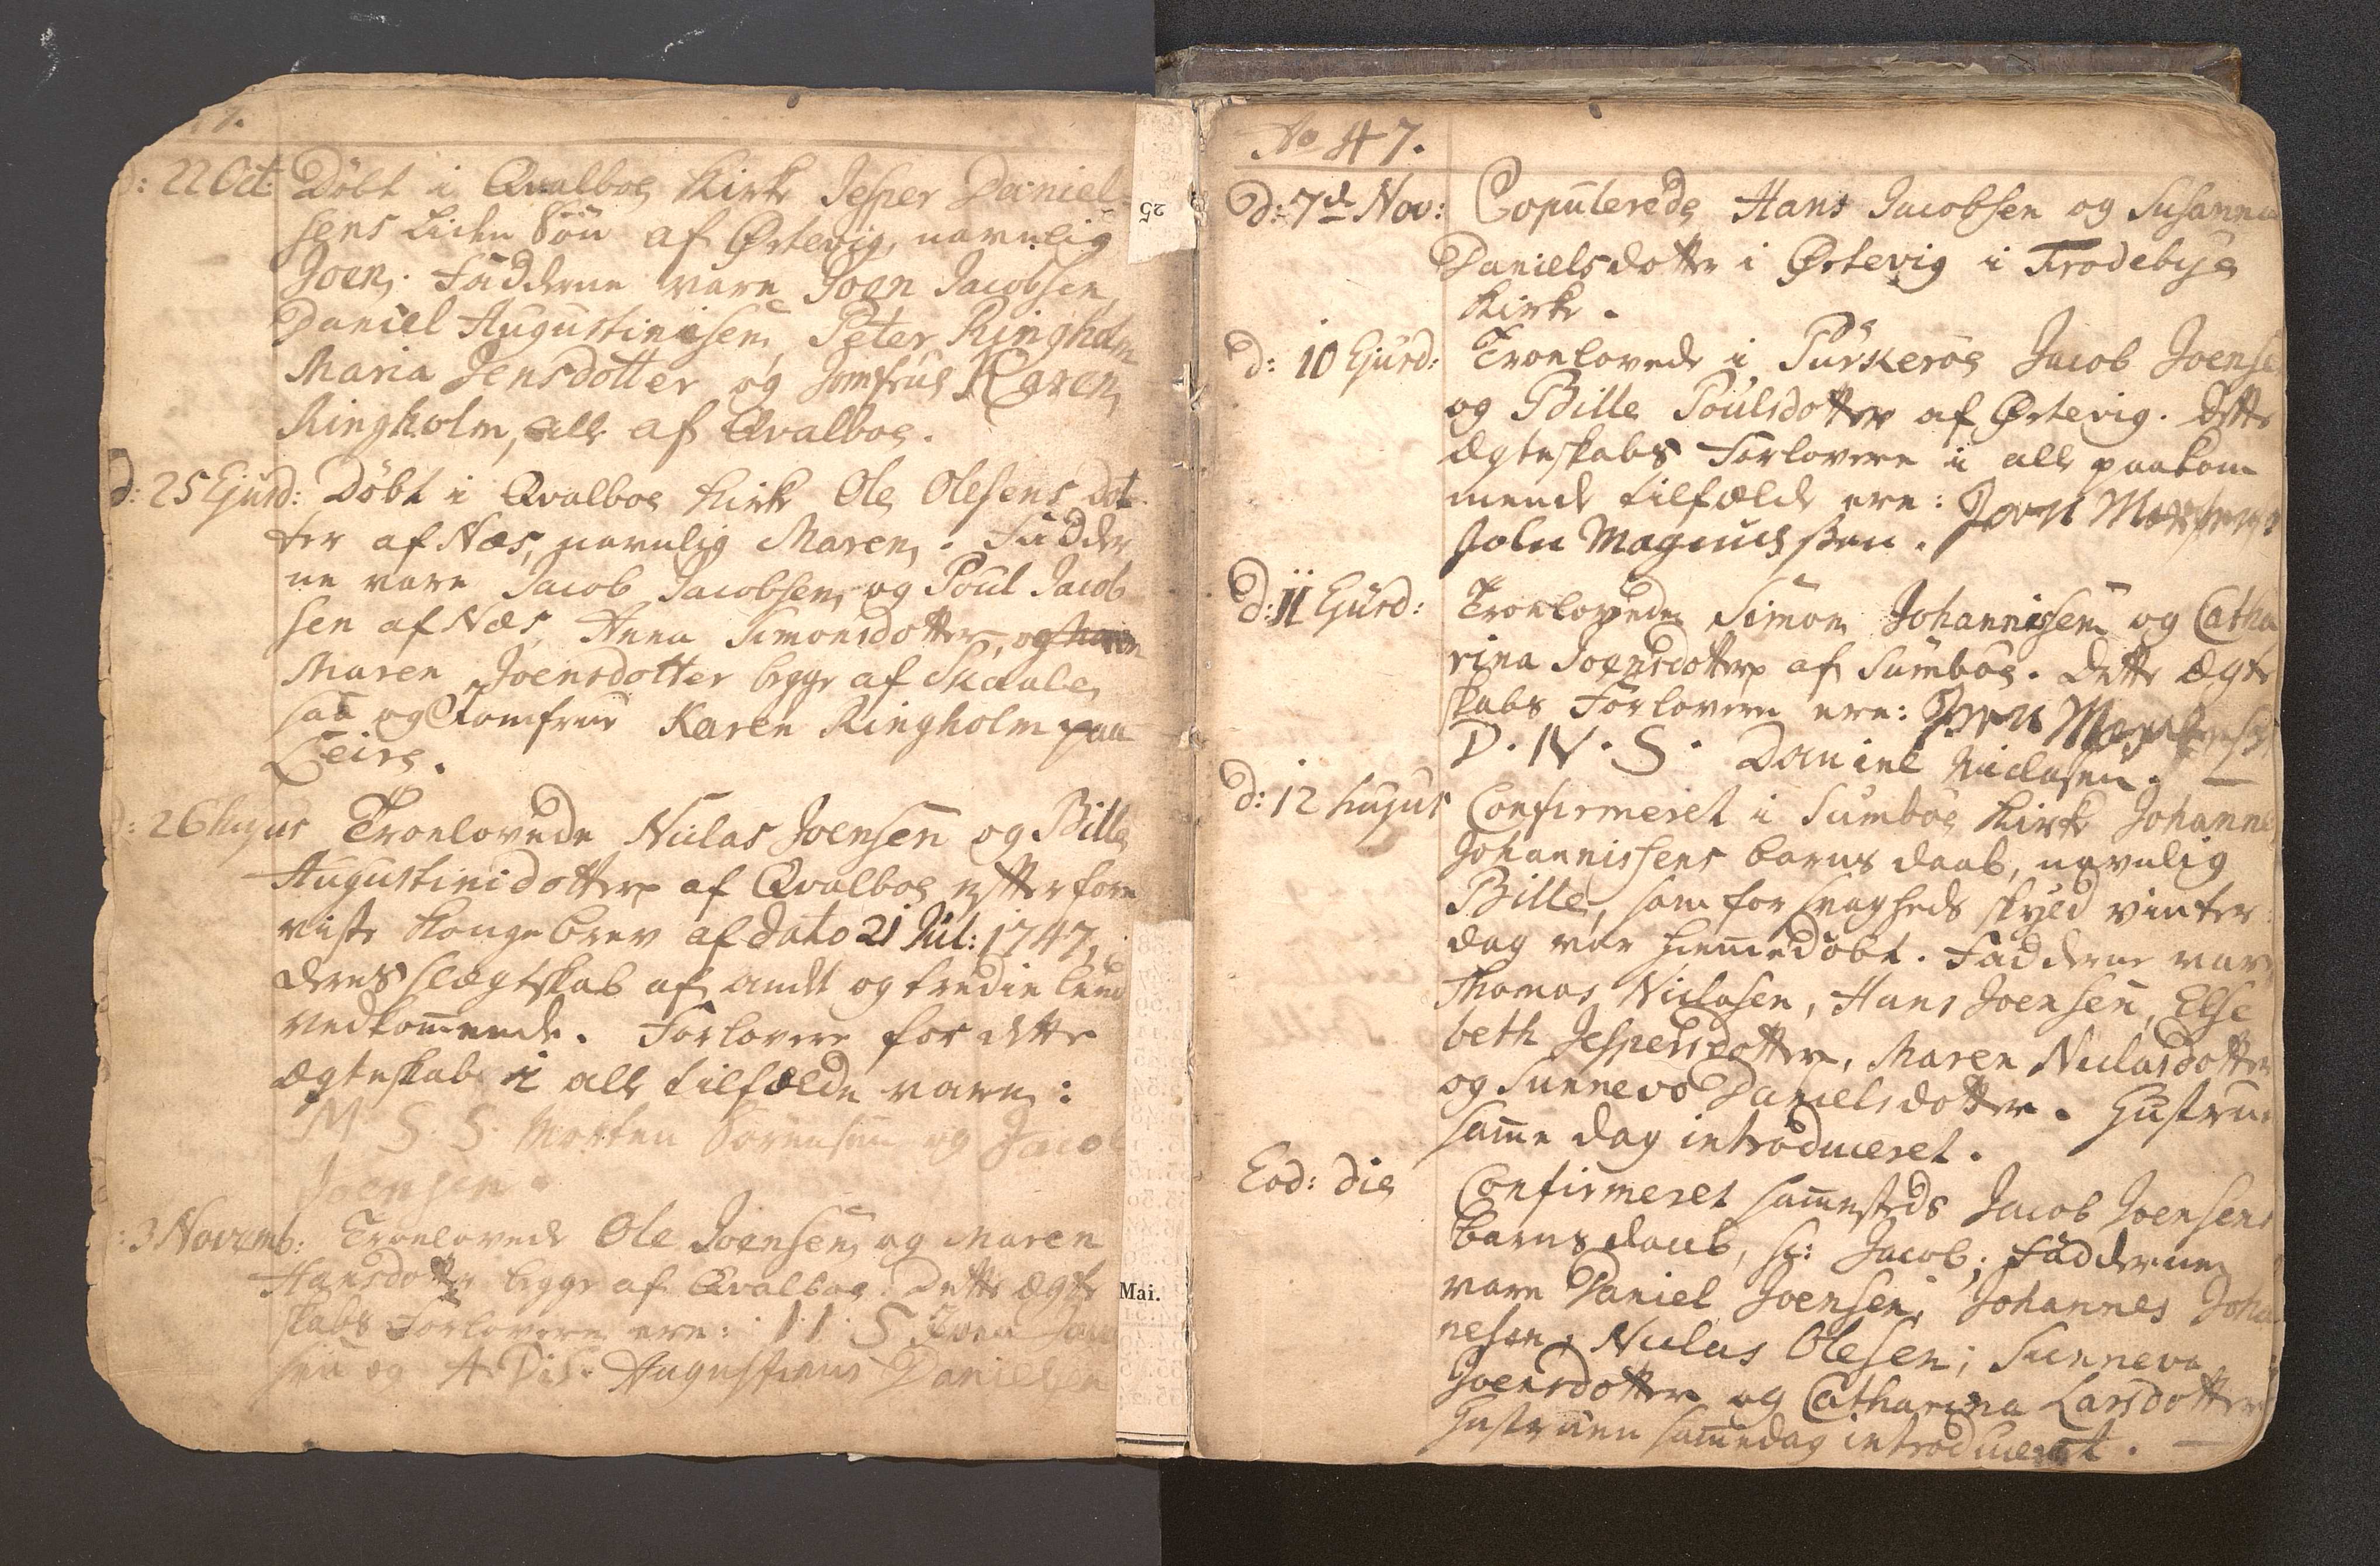 7.
d: 22 Oct: Döbt i Qvalboe Kirke Jesper Daniel-
sens liden Sön af Ørtevig, navnlig
Joen; Fadderne vare Joen Jacobsen,
Daniel Augustinisen, Peter Ringholm
Maria Jensdotter og Jomfrue Karen
Ringholm, alle af Qvalboe.
d: 25 Ejusd: Döbt i Qvalboe Kirke Ole Olesens dot-
ter af Næs, navnlig Maren. Fadder
ne vare Jacob Jacobsen og Poul Jacob
sen af Næs, Anna Simonsdotter, og
Maren Joensdotter begge af Skaale,
saa og Jomfrue Karen Ringholm paa
Leire.
d: 26 hujus Troelovede Niclas Joensen og Bille
Augustinidotter af Qvalboe efter fore
viste Kongebrev af dato 21 Jul: 1747,
deres slægtskab af andet og tredie leed
vedkommende. Forlovere for dette
ægteskab i alle tilfælde vare:
M S. S. Morten Sörensen og Jacob
Joensen.
: 3 Novemb: Troelovede Ole Joensen og Maren
Hansdotter begge af Qvalboe. Dette ægte
skabs Forlovere ere: I. I. S Joen Jacob
sen og A. D. S. Augustinus Danielsen
25
Mai.
Ao 47.
D: 7de Nov: Copulerede Hans Jacobsen og Susanna
Danielsdotter i Ørtevig i Frodebye
Kirke.
d: 10 Ejusd: Troelovede i Purkeröe Jacob Joense
og Bille Poulsdotter af Ørtevig. Dette
Ægteskabs Forlovere i alle paakom
mende tilfælde ere: Joen
John Magnussen.
D: 11 Ejusd: Troelovede Simon Johannissen og Catha
rina Joensdotter af Sumböe. Dette Ægte
skabs Forlovere ere: Joen
D. N. S. Daniel Niclasen.
d: 12 hujus Confirmeret i Sumböe Kirke Johannes
Johannissens barns daab, navnlig
Bille, som for svagheds skyld vinter
dag var hiemmedöbt. Fadderne vare
Thomas Niclasen, Hans Joensen, Else
beth Jespersdotter, Maren Niclasdotter
og Sunnevo Danielsdotter. Hustrue
samme dag introduceret.
Eod: die Confirmeret sammesteds Jacob Joensens
barns daab, sc: Jacob; Fadderne
vare Daniel Joensen, Johannes Joha
nesen, Niclas Olesen; Sunneva
Joensdotter og Catharina Larsdotter
Hustruen sammedag introduceret.